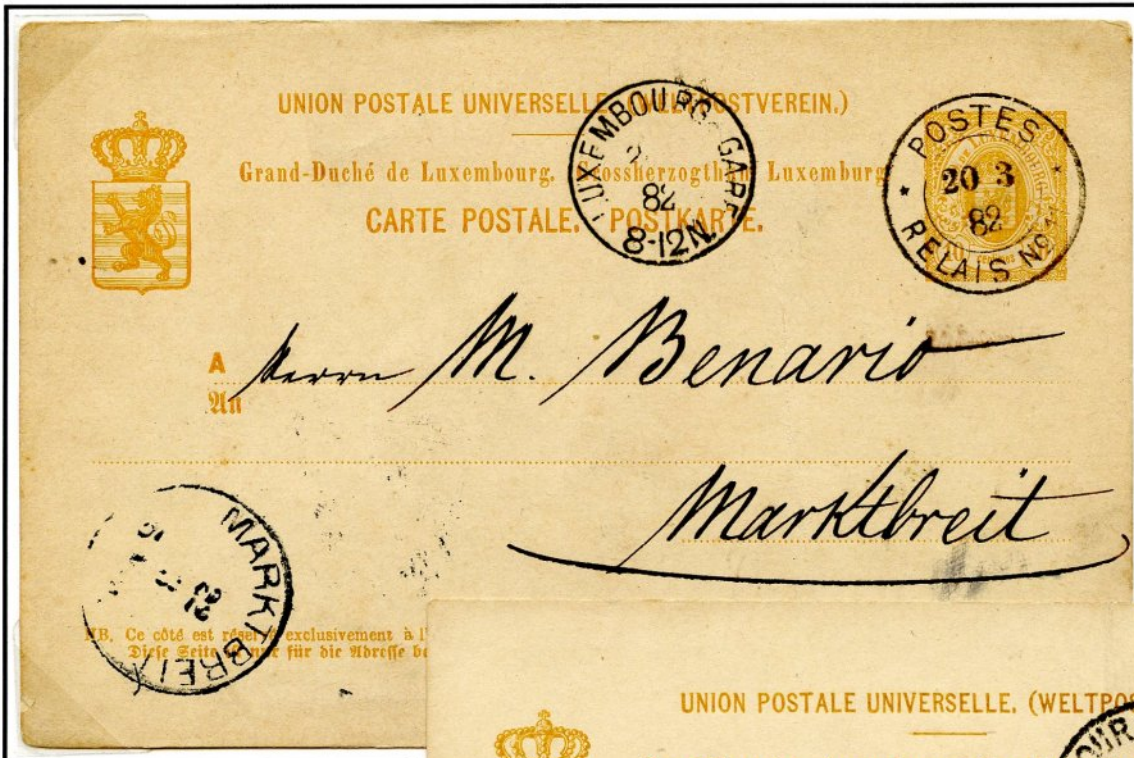 UNION POSTALE UNIVERSELLE. (WELTPOSTVEREIN.)
Grand-Duché de Luxembourg. Grossherzogthum Luxemburg
CARTE POSTALE. POSTKARTE.
LUXEMBOURG-GARE
82
8-12N.
* POSTES *
20 3
82
RELAIS No
A
An
Herrn M. Benario
Marktbreit
MARKTBREIT
21
NB. Ce côté est réservé exclusivement à l'
Diese Seite ist nur für die Adresse be
UNION POSTALE UNIVERSELLE. (WELTPOS
OUR